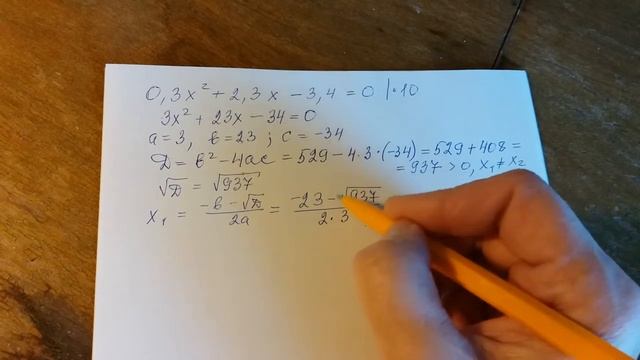 0,3x² + 2,3x - 3,4 = 0 |·10
3x² + 23x - 34 = 0
a = 3, b = 23 ; c = -34
D = b² - 4ac = 529 - 4·3·(-34) = 529 + 408 =
= 937 > 0, x₁ ≠ x₂
√D = √937
x₁ = (-b - √D)/2a = (-23 - √937)/2·3